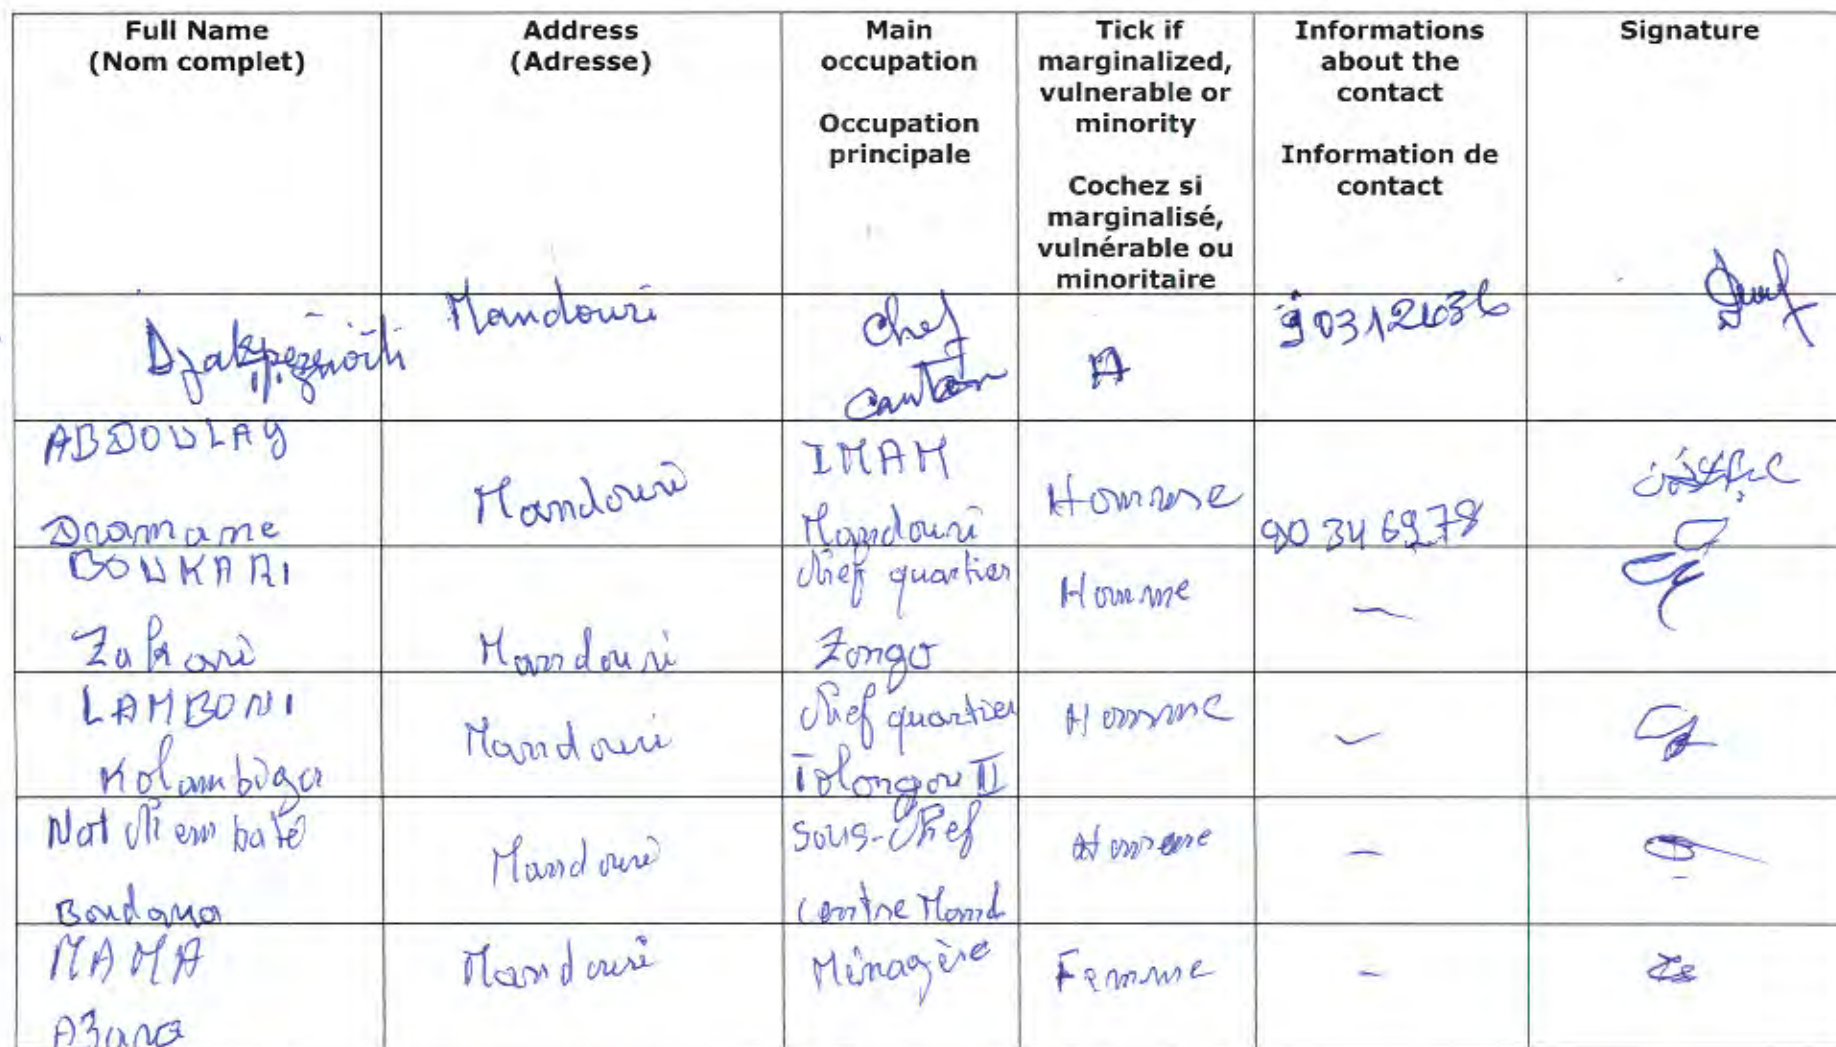 Full Name
(Nom complet)
Address
(Adresse)
Main
occupation
Occupation
principale
Tick if
marginalized,
vulnerable or
minority
Cochez si
marginalisé,
vulnérable ou
minoritaire
Informations
about the
contact
Information de
contact
Signature
Mandouri
Chef
canton
90312636
ABDOULAY
Dramane
Mandouri
IMAM
Mandouri
Homme
90346978
BOUKARI
Zakari
Mandouri
chef quartier
Zongo
Homme
LAMBONI
Kolambiga
Mandouri
chef quartier
Tolongou II
Homme
Natchembaté
Mandouri
sous-chef
centre Mand
Homme
–
MAMA
Azara
Mandouri
Ménagère
Femme
–